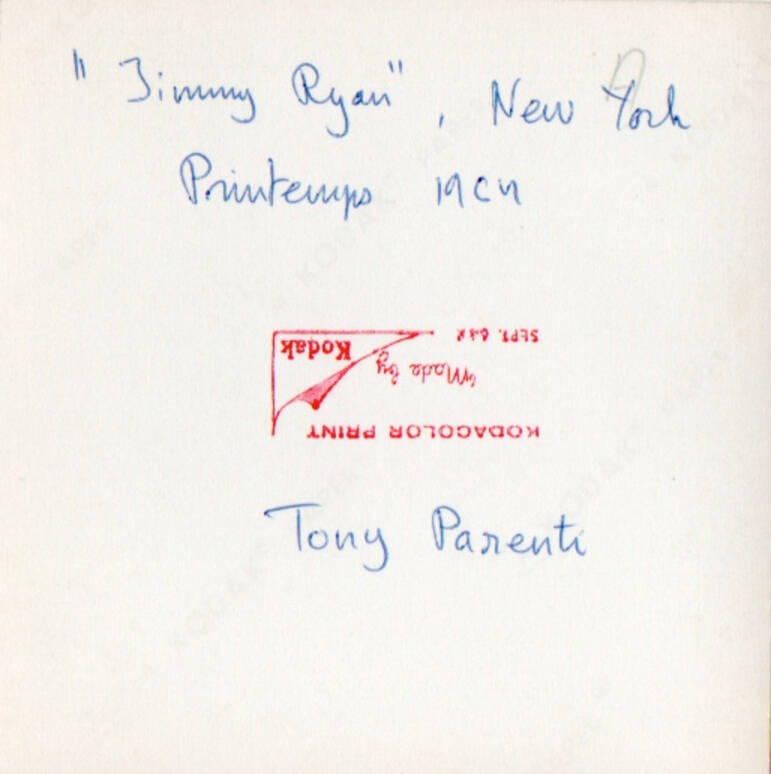 "Jimmy Ryan", New York
Printemps 1964
KODACOLOR PRINT
Made by
Kodak
SEPT. 64X
Tony Parenti